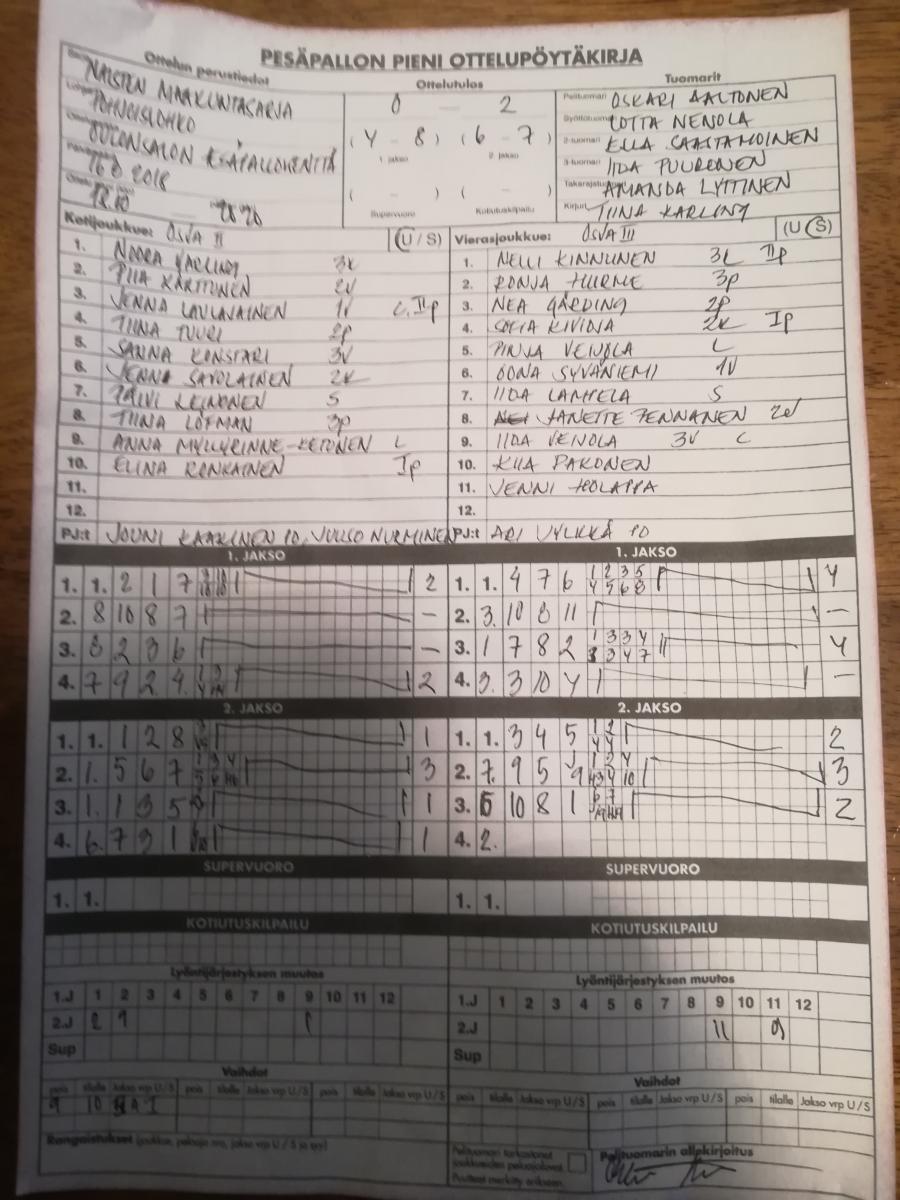 PESÄPALLON PIENI OTTELUPÖYTÄKIRJA
Ottelun perustiedot
Ottelutulos
Tuomarit
NAISTEN MAAKUNTASARJA
POHJOISLOHKO
OULONSALON PESÄPALLOKENTTÄ
16 8 2018
18.10
20 20
0 — 2
(4 - 8) (6 - 7)
1. jakso 2. jakso
( - ) ( - )
Supervuoro Kotiutuskilpailu
Pelituomari OSKARI AALTONEN
Syöttötuomari LOTTA NENOLA
2-tuomari ELLA SAASTAMOINEN
3-tuomari IIDA PUURUNEN
Takarajatuomari AMANDA LYTTINEN
Kirjuri TIINA KARLING
Kotijoukkue: OSVA II (U / S)
1. NOORA KARLING 3K
2. PIIA KARTTUNEN 2V
3. JENNA LAULAVAINEN 1V C, IIp
4. TIINA TUURI 2p
5. SANNA KONSTARI 3V
6. JENNA SAVOLAINEN 2K
7. PÄIVI LEINONEN S
8. TIINA LÖFMAN 3p
9. ANNA MYLLYRINNE-KETONEN L
10. ELINA RONKAINEN Ip
11.
12.
PJ:t JOUNI KAAKINEN PJ, JUUSO NURMINEN
Vierasjoukkue: OSVA III (U S)
1. NELLI KINNUNEN 3L IIp
2. RONJA HURME 3p
3. NEA GÅRDING 2p
4. SOFIA KIVIOJA 2K Ip
5. PINJA VEIJOLA L
6. OONA SYVÄNIEMI 1V
7. IIDA LAMPELA S
8. JANETTE PENNANEN 2V
9. IIDA VEIJOLA 3V C
10. KIIA PAKONEN
11. VENNI HOLAPPA
12.
PJ:t ARI VYLIKKÄ PJ
1. JAKSO
1. 1. 2 1 7 2
2. 8 10 8 7 —
3. 8 2 3 6 —
4. 7 9 2 4 2
1. JAKSO
1. 1. 4 7 6 1 2 3 5 4 5 6 8 4
2. 3. 10 8 11 —
3. 1 7 8 2 1 3 3 4 3 3 4 7 4
4. 3. 3 10 4 —
2. JAKSO
1. 1. 1 2 8 1
2. 1. 5 6 7 3
3. 1. 1 3 5 1
4. 6. 7 3 1 1
2. JAKSO
1. 1. 3 4 5 1 2 4 4 2
2. 7. 9 5 9 3
3. 6 10 8 1 6 7 2
4. 2.
SUPERVUORO
1. 1.
SUPERVUORO
1. 1.
KOTIUTUSKILPAILU
KOTIUTUSKILPAILU
Lyöntijärjestyksen muutos
1.J 1 2 3 4 5 6 7 8 9 10 11 12
2.J 2 9 1
Sup
Lyöntijärjestyksen muutos
1.J 1 2 3 4 5 6 7 8 9 10 11 12
2.J 11 9
Sup
Vaihdot
pois tilalle Jakso vrp U/S pois tilalle Jakso vrp U/S pois tilalle Jakso vrp U/S
9 10
Vaihdot
pois tilalle Jakso vrp U/S pois tilalle Jakso vrp U/S pois tilalle Jakso vrp U/S
Rangaistukset (joukkue, pelaaja nro, jakso vrp U/S ja syy)
Pelituomari tarkastanut
joukkueiden pelaajaluvat.
Puutteet merkitty erikseen.
Pelituomarin allekirjoitus